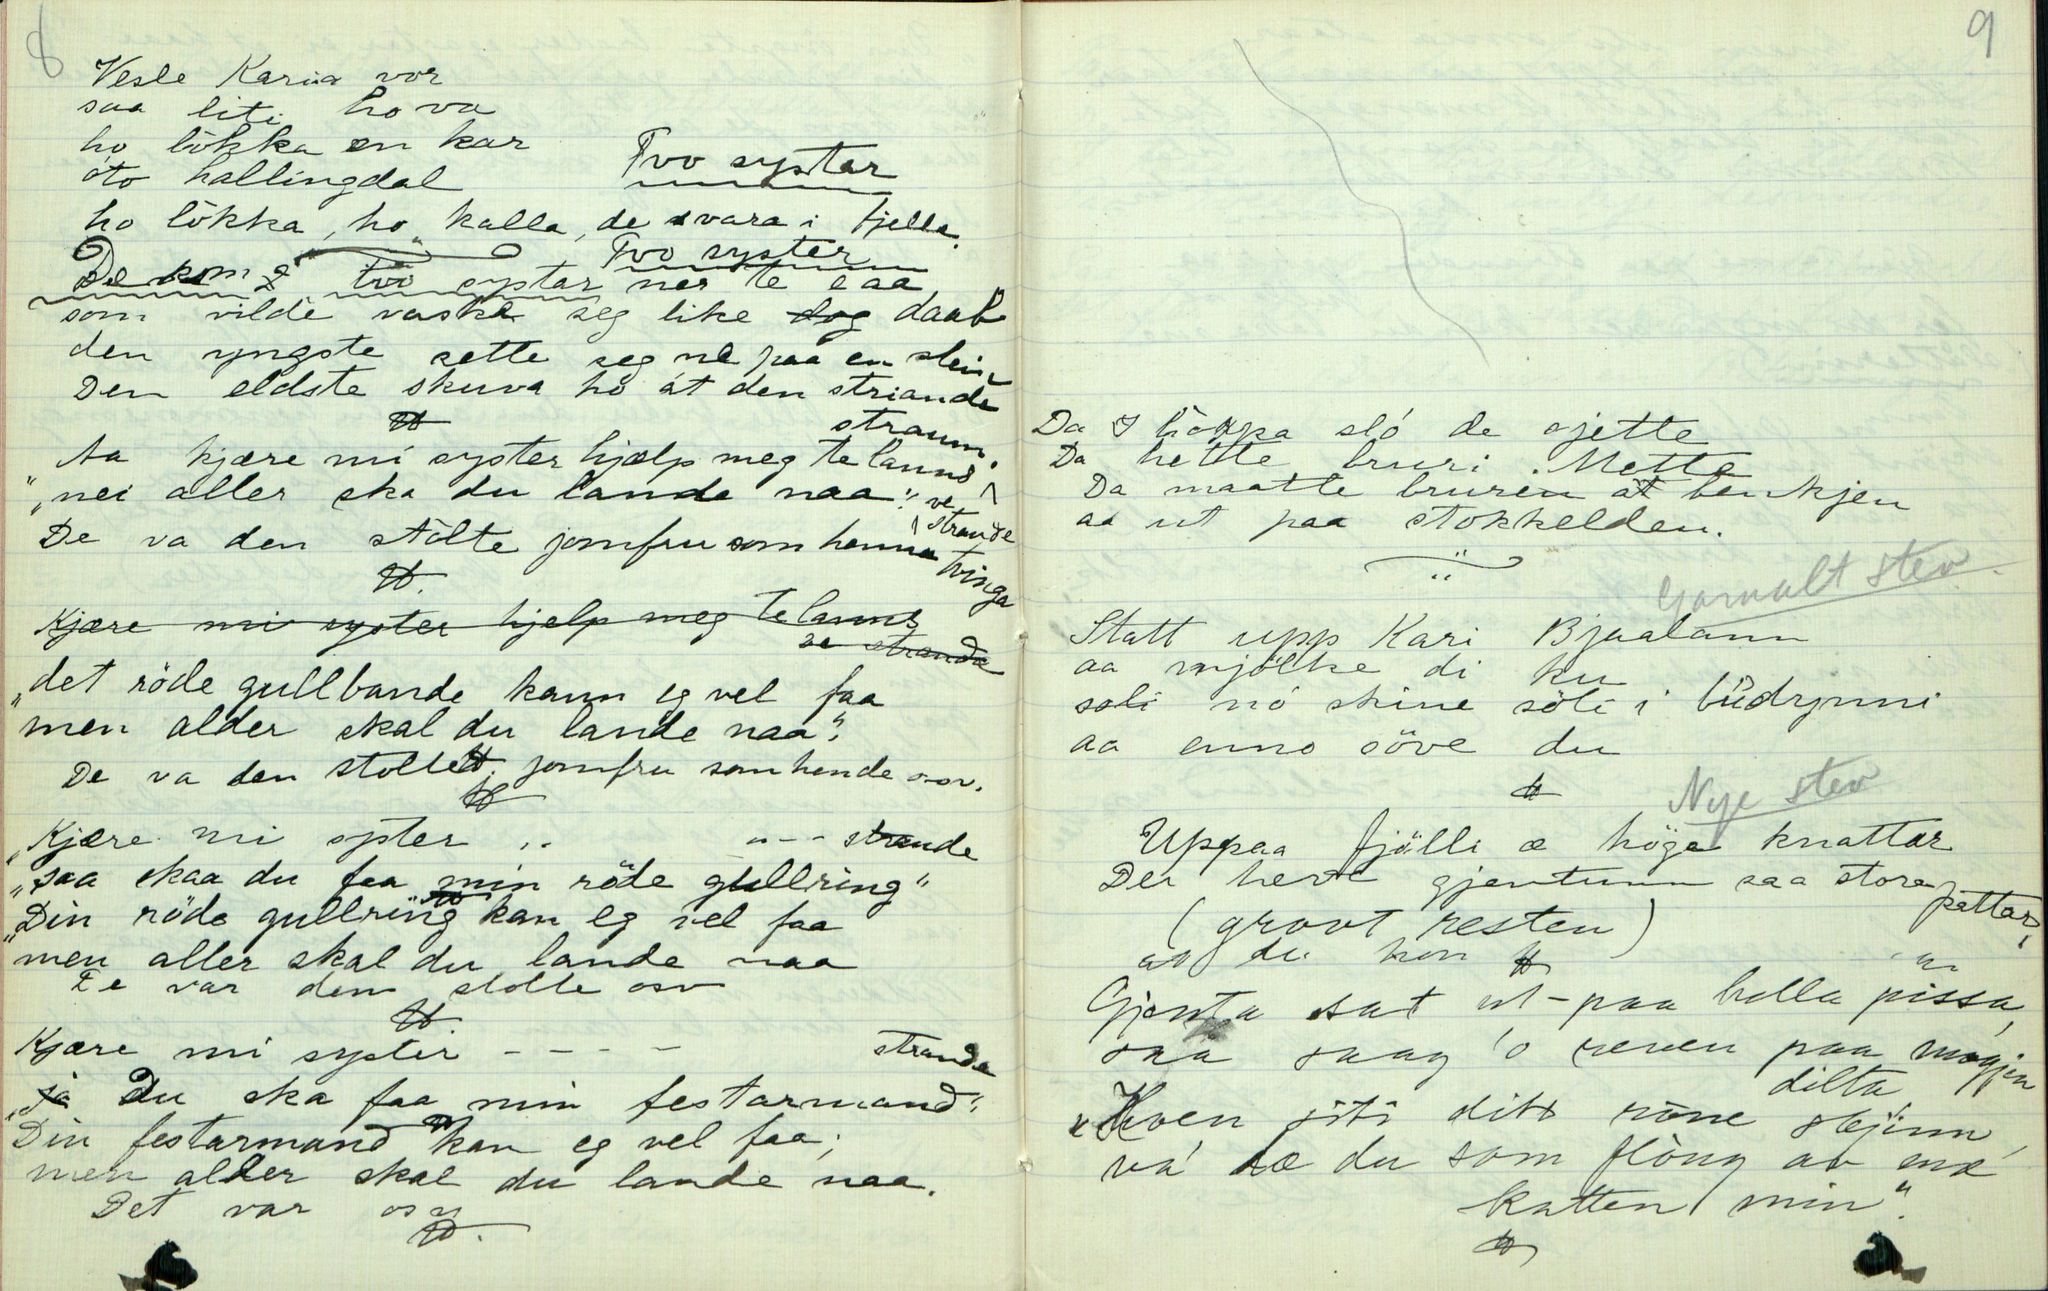 8
Vesle Karia vor
saa liti ho va
ho lökka en kar
óto hallingdal
Tvo systar
ho lökka, ho kalla, de svara i fjella.
Tvo syster
De kom 2 tvo systar ner te eaa
som vilde vaska seg like dog daab
den yngste sette seg ne paa en stein
Den eldste skuva ho át den striande
straum.
Aa kjære mi syster hjælp meg te lanns
ve strande
"nei aller ska du lande naa"
De va den stölte jomfru som henna tvinga
Kjære mi syster hjelp meg te lanns
ve stranda
"det röde gullbande kann eg vel faa
men alder skal du lande naa".
De va den stolte jomfru som hende osv.
"Kjære mi syster .. "-- strande
"saa skaa du faa min röde gullring"
"Din röde gullring kan eg vel faa
men aller skal du lande naa
De var den stolte osv
Kjære mi syster - - - - stranda
"ja Du ska faa min festarmand".
"Din festarmand kan eg vel faa;
men alder skal du lande naa.
Det var osv
9
Da höppa sló de sjette
Da hette bruri Mette
Da maatte bruren át benkjen
aa ut paa stokkelden.
Gamalt stev.
Statt upp Kari Bjaalann
aa mjölke di ku
soli nó skine söle i büdrynni
aa enno söve du
Nye stev
Uppaa fjölli æ höge knattar
Der heve gjentunn saa store pattar,
(grovt resten)
Gjenta sat ut-paa hella pissa,
saa saag 'o reven paa mogjen
dilta
"Hven siti ditt röne skjinn,
vá dæ du som flöng av mæ
katten min".